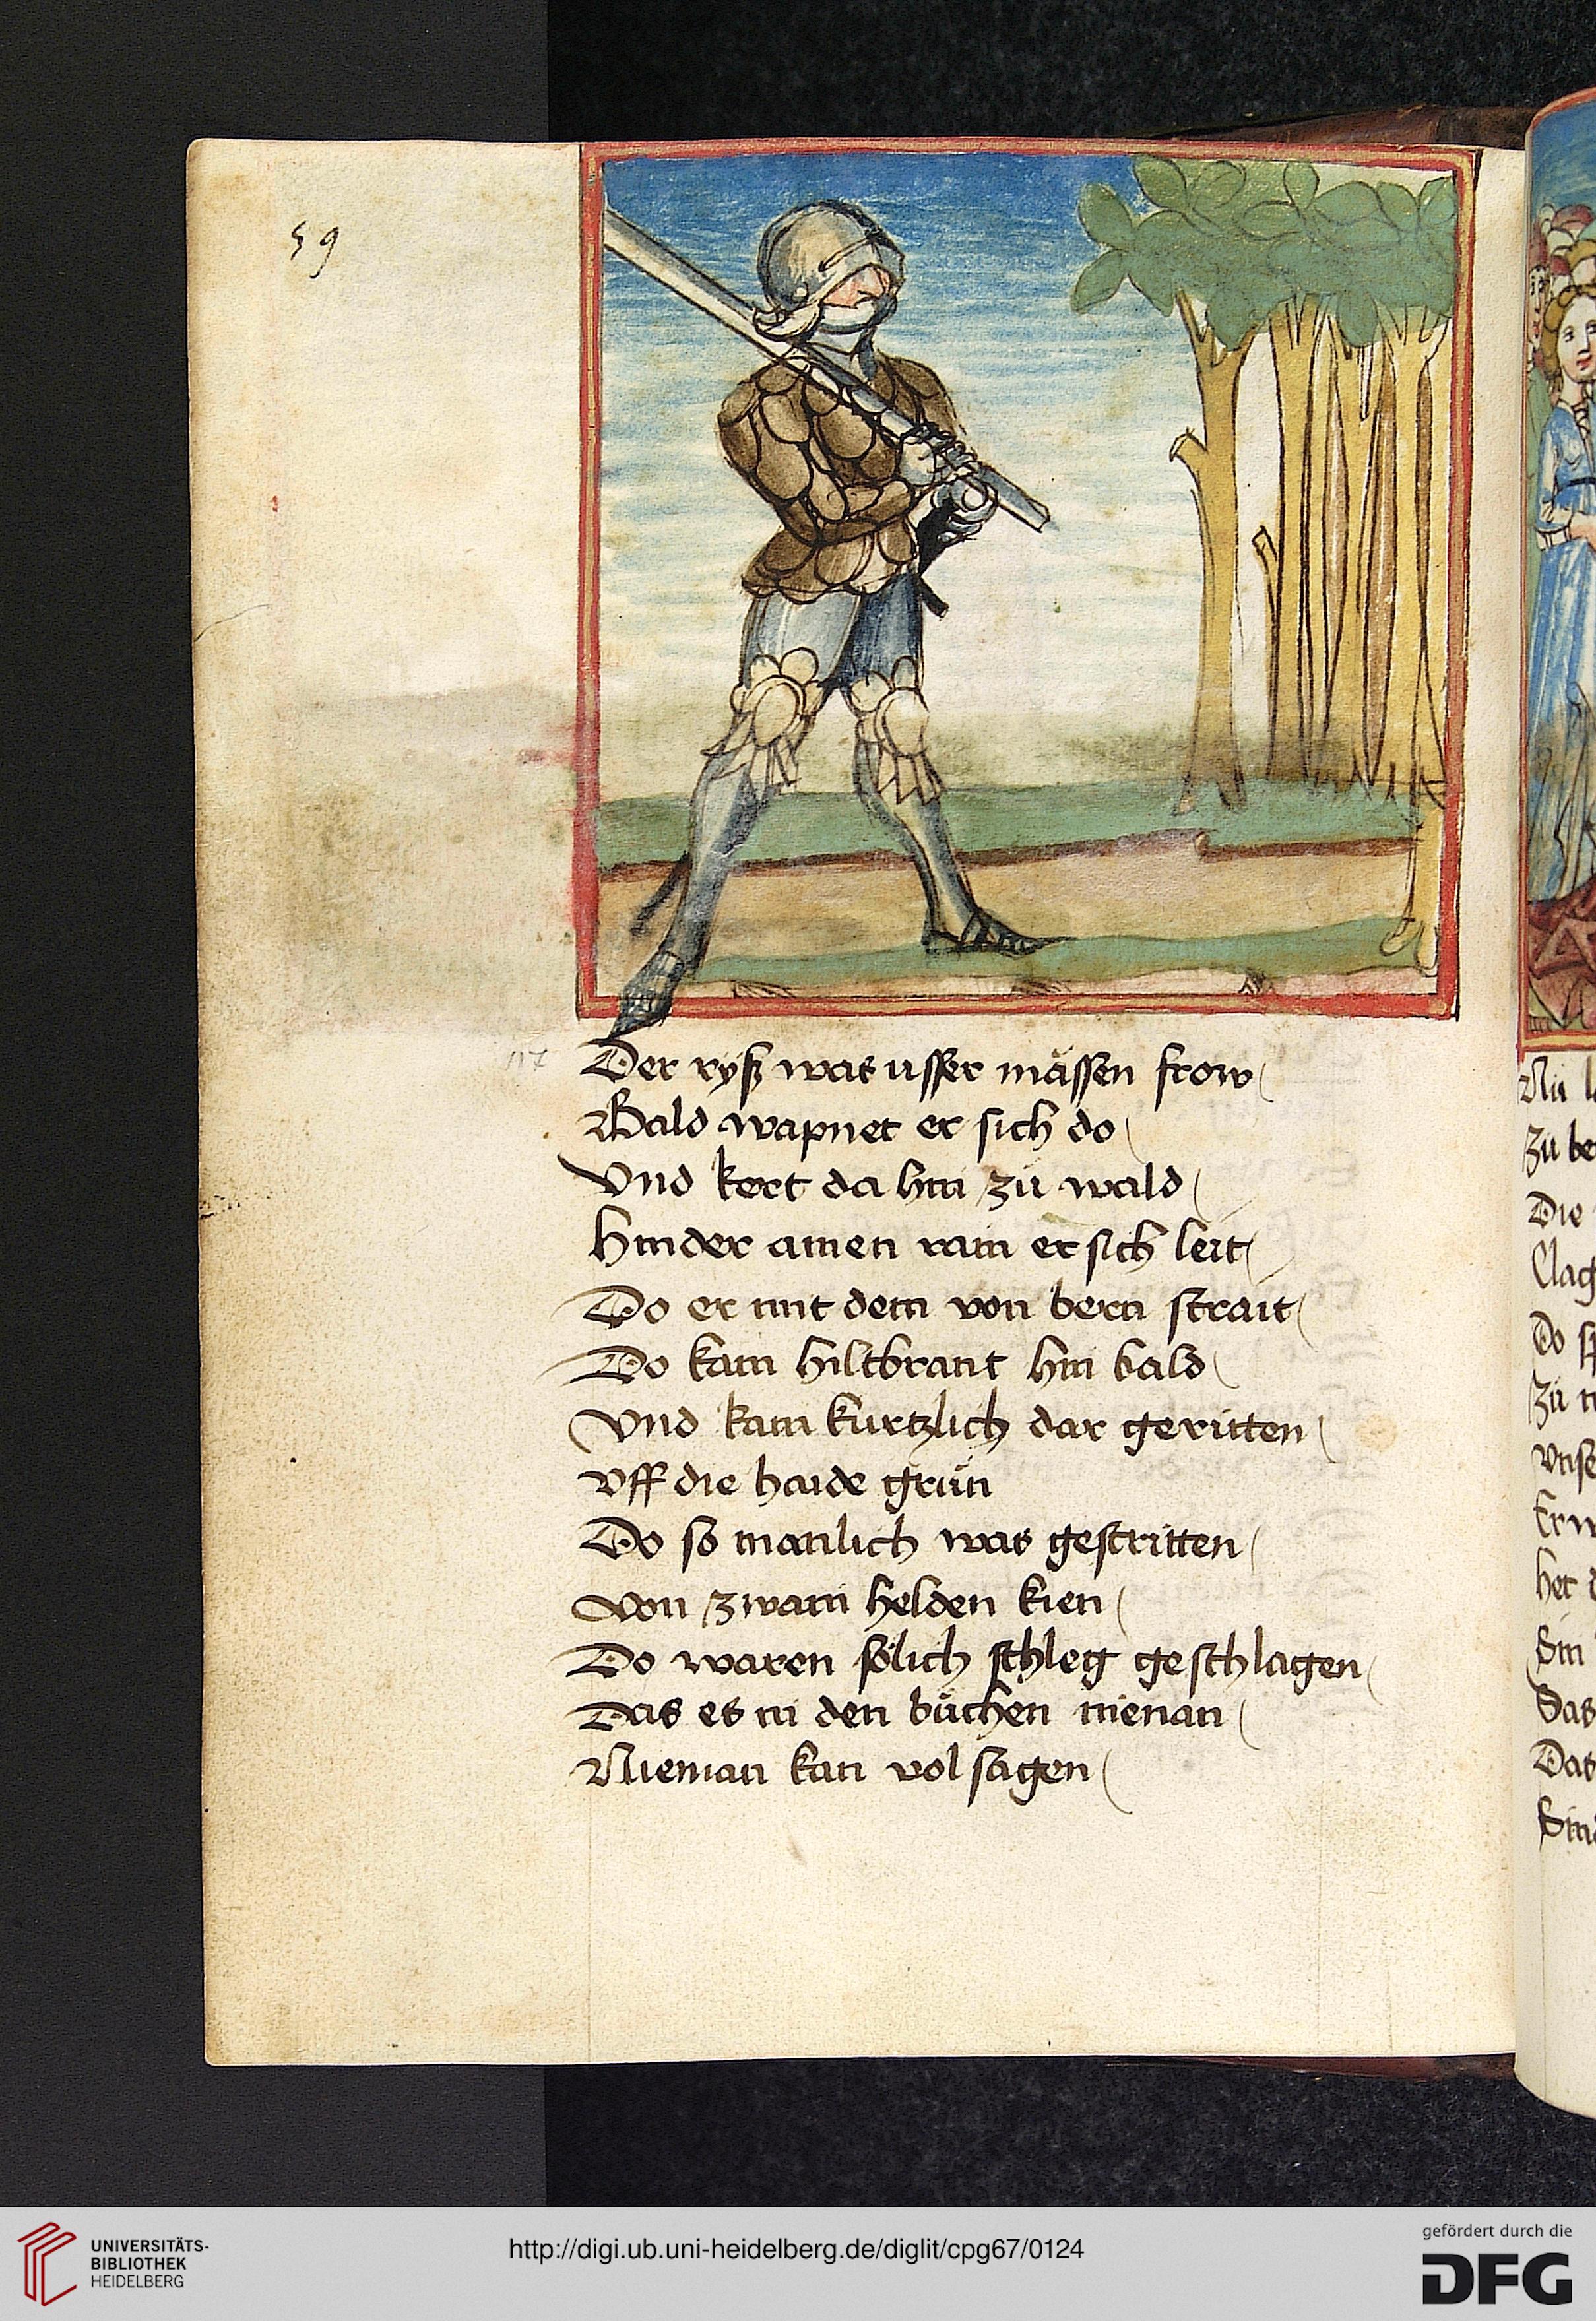 59
117
Der ryß was usser mässen frow
Bald wapnet er sich do
Vnd kert da hin zü wald
Hinder ainen rain er sich leit
Do er mit dem von bern strait
Do kam hiltbrant hin bald
Vnd kam kurtzlich dar geritten
Vff die haide grün
Do so manlich was gestritten
Von zwain helden kien
Do waren sölich schleg geschlagen
Das es in den büchen nienan
Nieman kan vol sagen
Nü
Zü be
Die
Clag
Do
Zü
Vnse
Er
het
Sin
Das
Das
UNIVERSITÄTS-
BIBLIOTHEK
HEIDELBERG
http://digi.ub.uni-heidelberg.de/diglit/cpg67/0124
gefördert durch die
DFG